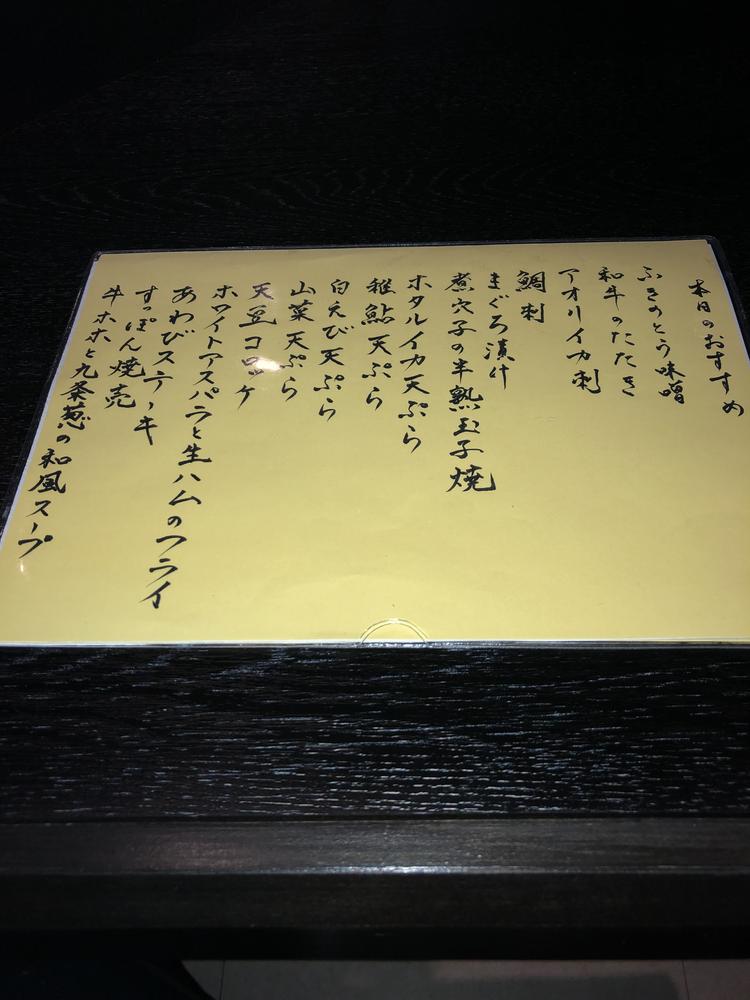 本日のおすすめ
ふきのとう味噌
和牛のたたき
アオリイカ刺
鯛刺
まぐろ漬け
煮穴子の半熟玉子焼
ホタルイカ天ぷら
稚鮎天ぷら
白えび天ぷら
山菜天ぷら
天豆コロッケ
ホワイトアスパラと生ハムのフライ
あわびステーキ
すっぽん焼売
牛ホホと九条葱の和風スープ